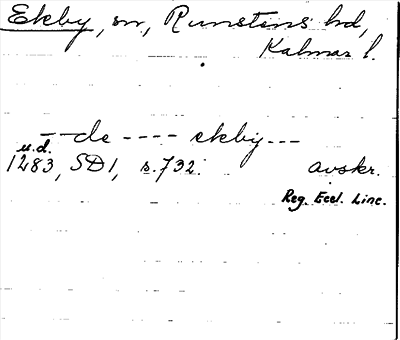 Ekby, sn, Runstens hd,
Kalmar l.
--de ---- ekby ---
u.d.
1283, SD1, s.732. avskr.
Reg. Eccl. Linc.